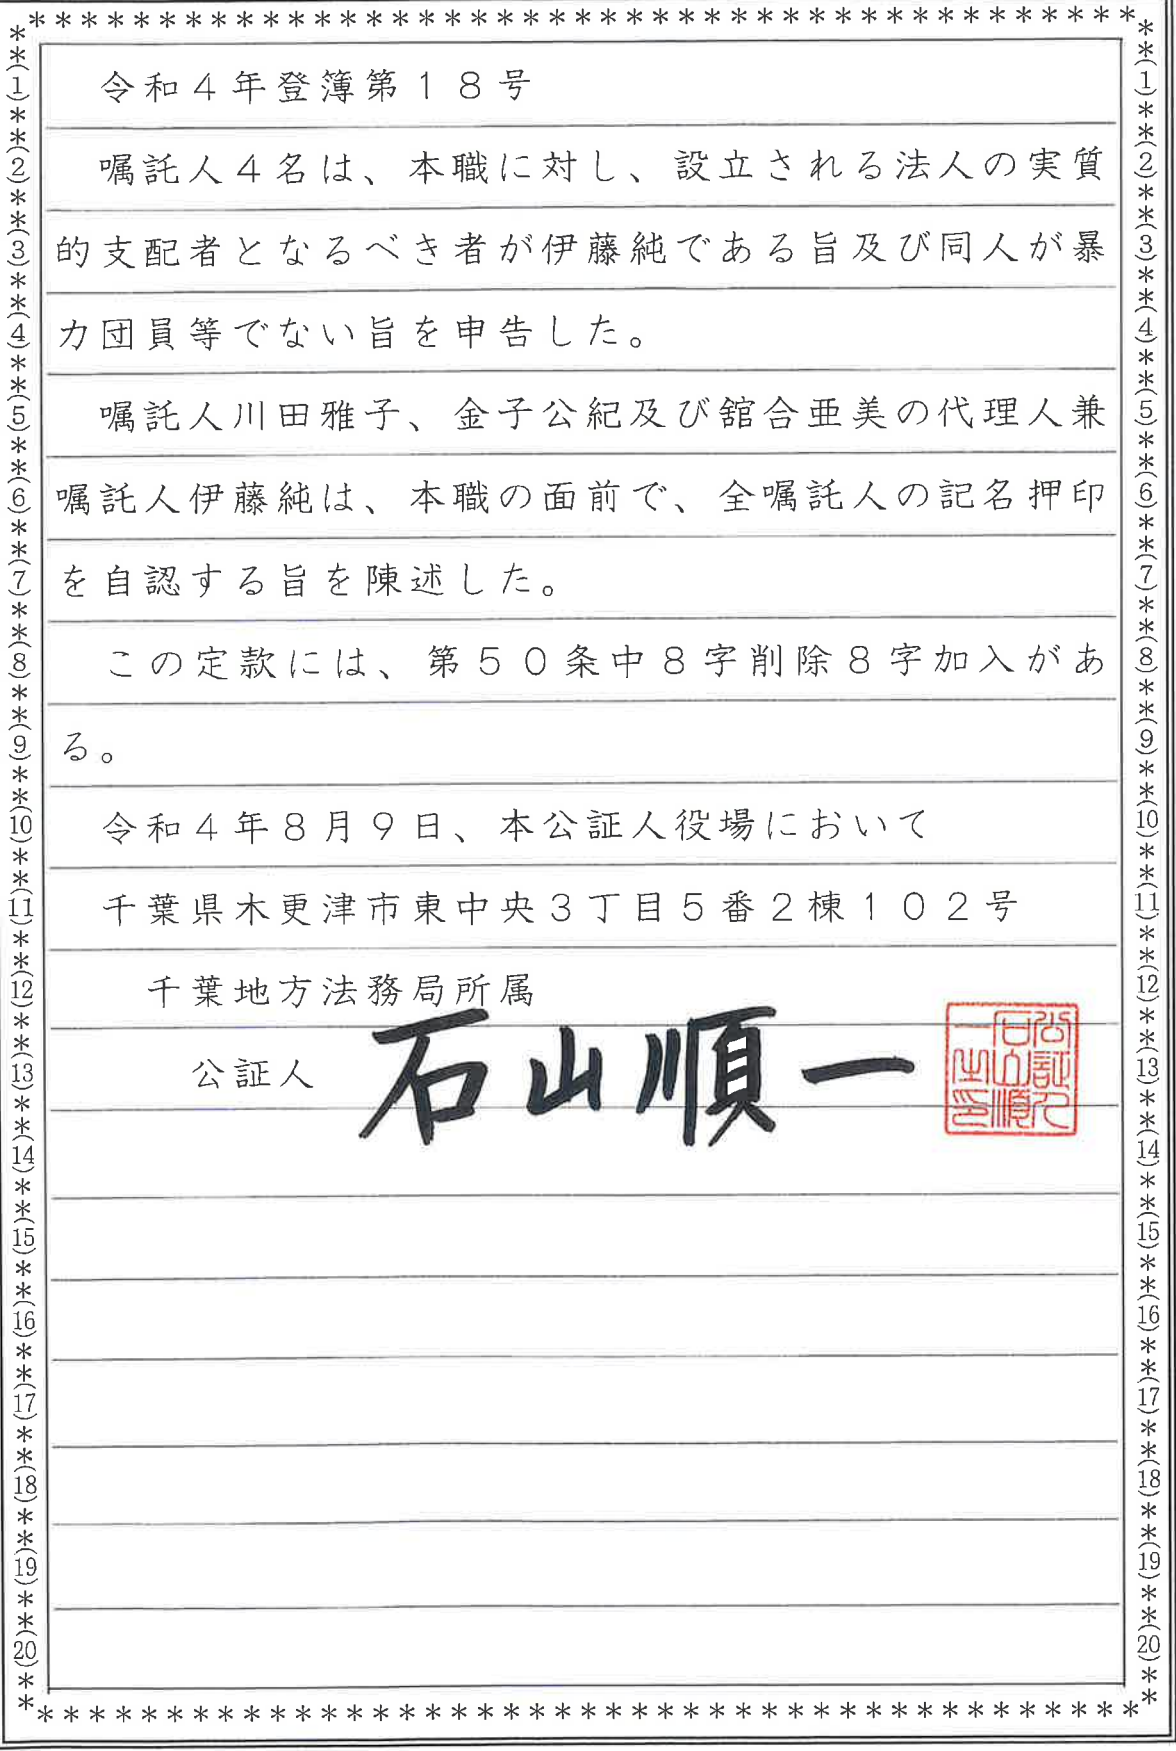 令和４年登簿第１８号
嘱託人４名は、本職に対し、設立される法人の実質
的支配者となるべき者が伊藤純である旨及び同人が暴
力団員等でない旨を申告した。
嘱託人川田雅子、金子公紀及び舘合亜美の代理人兼
嘱託人伊藤純は、本職の面前で、全嘱託人の記名押印
を自認する旨を陳述した。
この定款には、第５０条中８字削除８字加入があ
る。
令和４年８月９日、本公証人役場において
千葉県木更津市東中央３丁目５番２棟１０２号
千葉地方法務局所属
公証人 石山順一
公証人
石山順
一之印